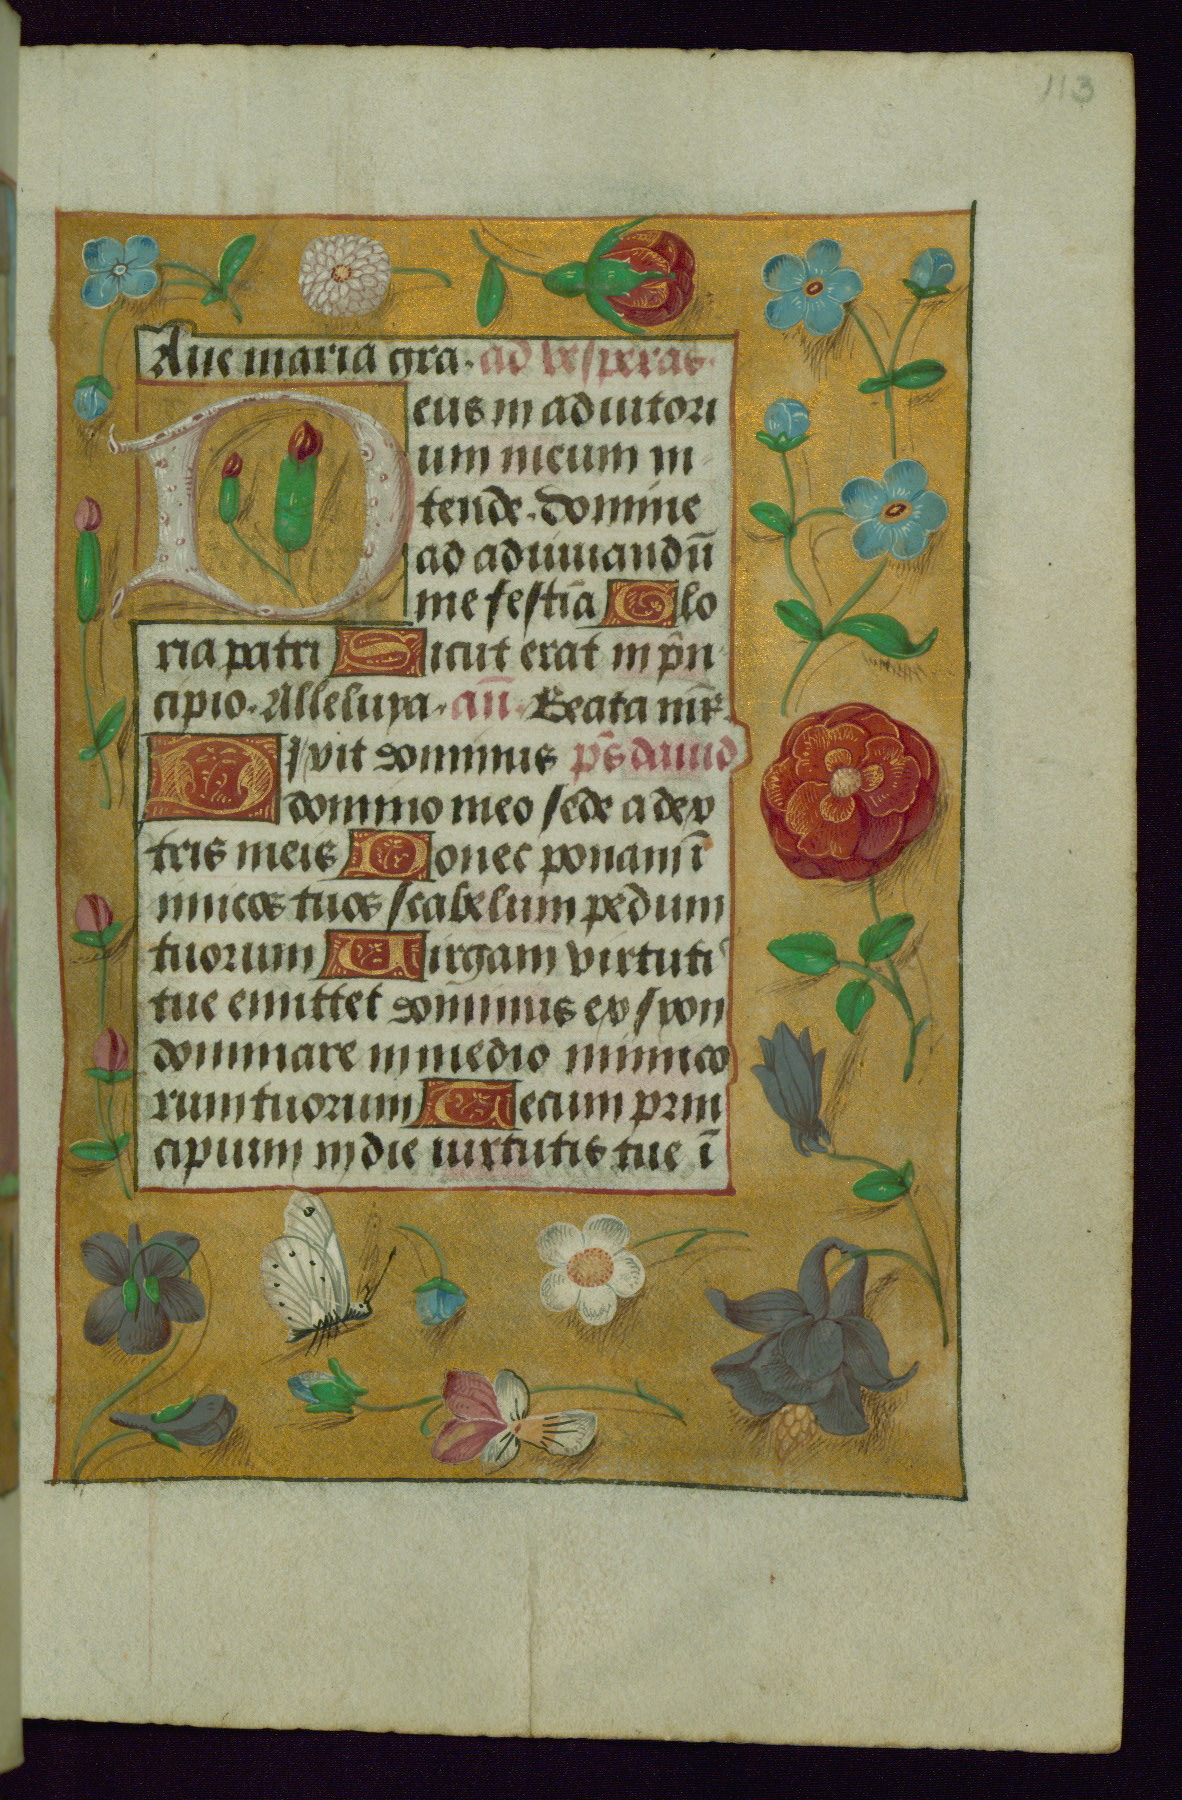 113
Aue maria gra. ad vesperas.
Deus in adiutori
um meum in
tende. domine
ad adiuuandū
me festiā Glo
ria patri Sicut erat in p̄n
cipio. Alleluya. añ. Beata mr̄.
Dixit dominus ps̄ dauid
domino meo sede a dex
tris meis Donec ponam ī
imicos tuos scabelum pedum
tuorum Virgam virtuti
tue emittet dominus ex syon
dominare in medio inimico
rum tuorum Tecum prin
cipium in die uirtutis tue ī